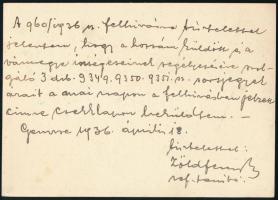 A 960/1936 sz. felhívásra tisztelettel
jelentem, hogy a hozzám küldött és a
vármegye inségeseinek segélyezésére szol-
gáló 3 drb. 9349. 9350. 9351. sz. sorsjegyek
árait a mai napon a felhívásban jelzett
címre csekklapon beküldtem. –
1936. április 18.
tisztelettel:
ref. tanító.